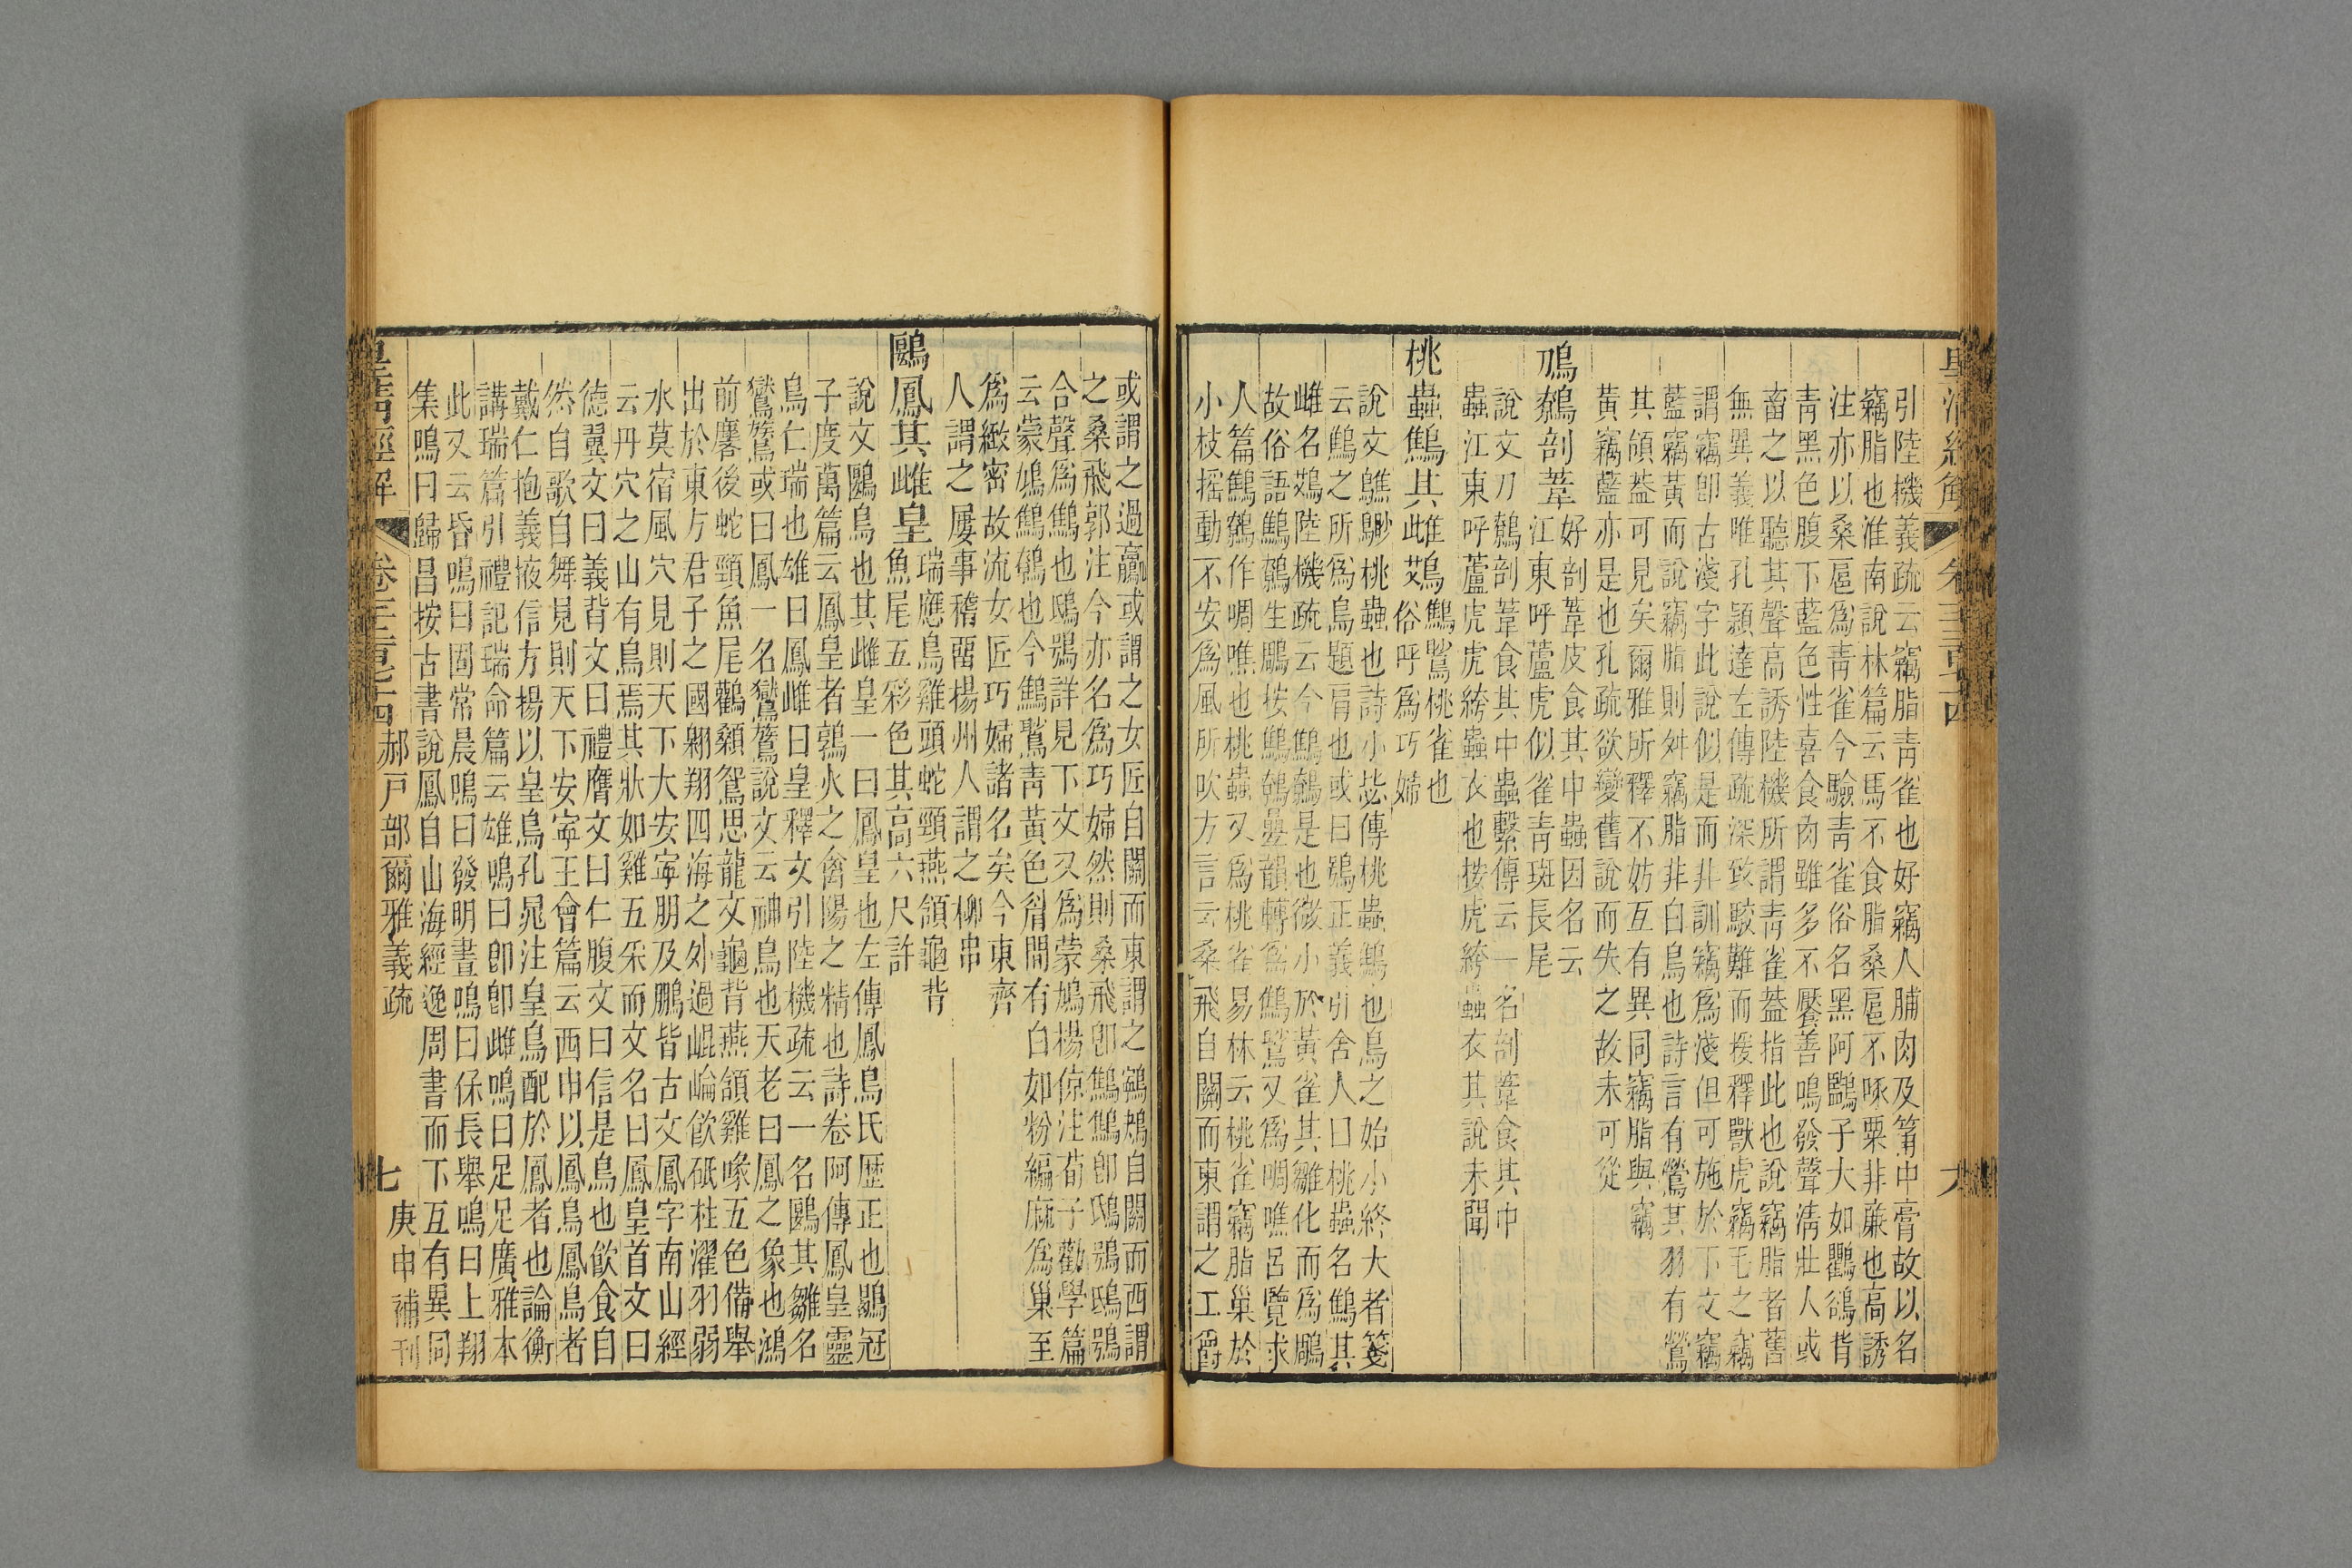 引陸機義疏云竊脂青雀也好竊人脯肉及筩中膏故以名
竊脂也淮南說林篇云馬不食脂桑扈不啄粟非廉也高誘
注亦以桑扈爲青雀今驗青雀俗名黑阿鷂子大如鸜鵒背
青黑色腹下藍色性喜食肉雖多不饜善鳴發聲淸壯人或
畜之以聽其聲高誘陸機所謂青雀葢指此也說竊脂者舊
無異義唯孔穎達左傳疏深致駁難而援釋獸虎竊毛之竊
謂竊卽古淺字此說似是而非訓竊爲淺但可施於下文竊
藍竊黃而說竊脂則舛竊脂非白鳥也詩言有鶯其羽有鶯
其領葢可見矣爾雅所釋不妨互有異同竊脂與竊
黃竊藍亦是也孔疏欲變舊說而失之故未可從
鳭鷯剖葦好剖葦皮食其中蟲因名云
江東呼蘆虎似雀青斑長尾
說文刀鷯剖葦食其中蟲繫傳云一名剖葦食其中
蟲江東呼蘆虎虎絝蟲衣也按虎絝蟲衣其說未聞
桃蟲鷦其雌鴱鷦鷯桃雀也
俗呼爲巧婦
說文鷦鷯桃蟲也詩小毖傳桃蟲鷦也鳥之始小終大者箋
云鷦之所爲鳥題肩也或曰鴞正義引舍人曰桃蟲名鷦其
雌名鴱陸機疏云今鷦鷯是也微小於黃雀其雛化而爲鵰
故俗語鷦鷯生鵰按鷦鷯疊韻轉爲鷦鷯又爲啁噍呂覽求
人篇鷦鷯作啁噍也桃蟲又爲桃雀易林云桃雀竊脂巢於
小枝搖動不安爲風所吹方言云桑飛自關而東謂之工爵
或謂之過鸁或謂之女匠自關而東謂之鸋鴂自關而西謂
之桑飛郭注今亦名爲巧婦然則桑飛卽鷦鷦卽鴟鴞鴟鴞
合聲爲鷦也鴟鴞詳見下文又爲蒙鳩楊倞注荀子勸學篇
云蒙鳩鷦鷯也今鷦鷯青黃色眉間有白如粉編麻爲巢至
爲緻密故流女匠巧婦諸名矣今東齊
人謂之屢事稽畱楊州人謂之柳串
鶠鳳其雌皇瑞應鳥雞頭蛇頸燕頷龜背
魚尾五彩色其高六尺許
說文鶠鳥也其雌皇一曰鳳皇也左傳鳳鳥氏歷正也鶡冠
子度萬篇云鳳皇者鶉火之禽陽之精也詩卷阿傳鳳皇靈
鳥仁瑞也雄曰鳳雌曰皇釋文引陸機疏云一名鶠其雛名
鸑鷟或曰鳳一名鸑鷟說文云神鳥也天老曰鳳之象也鴻
前麐後蛇頸魚尾鸛顙鴛思龍文龜背燕頷雞喙五色備舉
出於東方君子之國翺翔四海之外過崐崘飮砥柱濯羽弱
水莫宿風穴見則天下大安寧朋及鵬皆古文鳳字南山經
云丹穴之山有鳥焉其狀如雞五采而文名曰鳳皇首文曰
德翼文曰義背文曰禮膺文曰仁腹文曰信是鳥也飮食自
然自歌自舞見則天下安寧王會篇云西申以鳳鳥鳳鳥者
戴仁抱義掖信方揚以皇鳥孔晁注皇鳥配於鳳者也論衡
講瑞篇引禮記瑞命篇云雄鳴曰卽卽雌鳴曰足足廣雅本
此又云昏鳴曰固常晨鳴曰發明晝鳴曰保長舉鳴曰上翔
集鳴曰歸昌按古書說鳳自山海經逸周書而下互有異同
皇淸經解 卷三百七十四 郝戶部爾雅義疏 七 庚申補刊